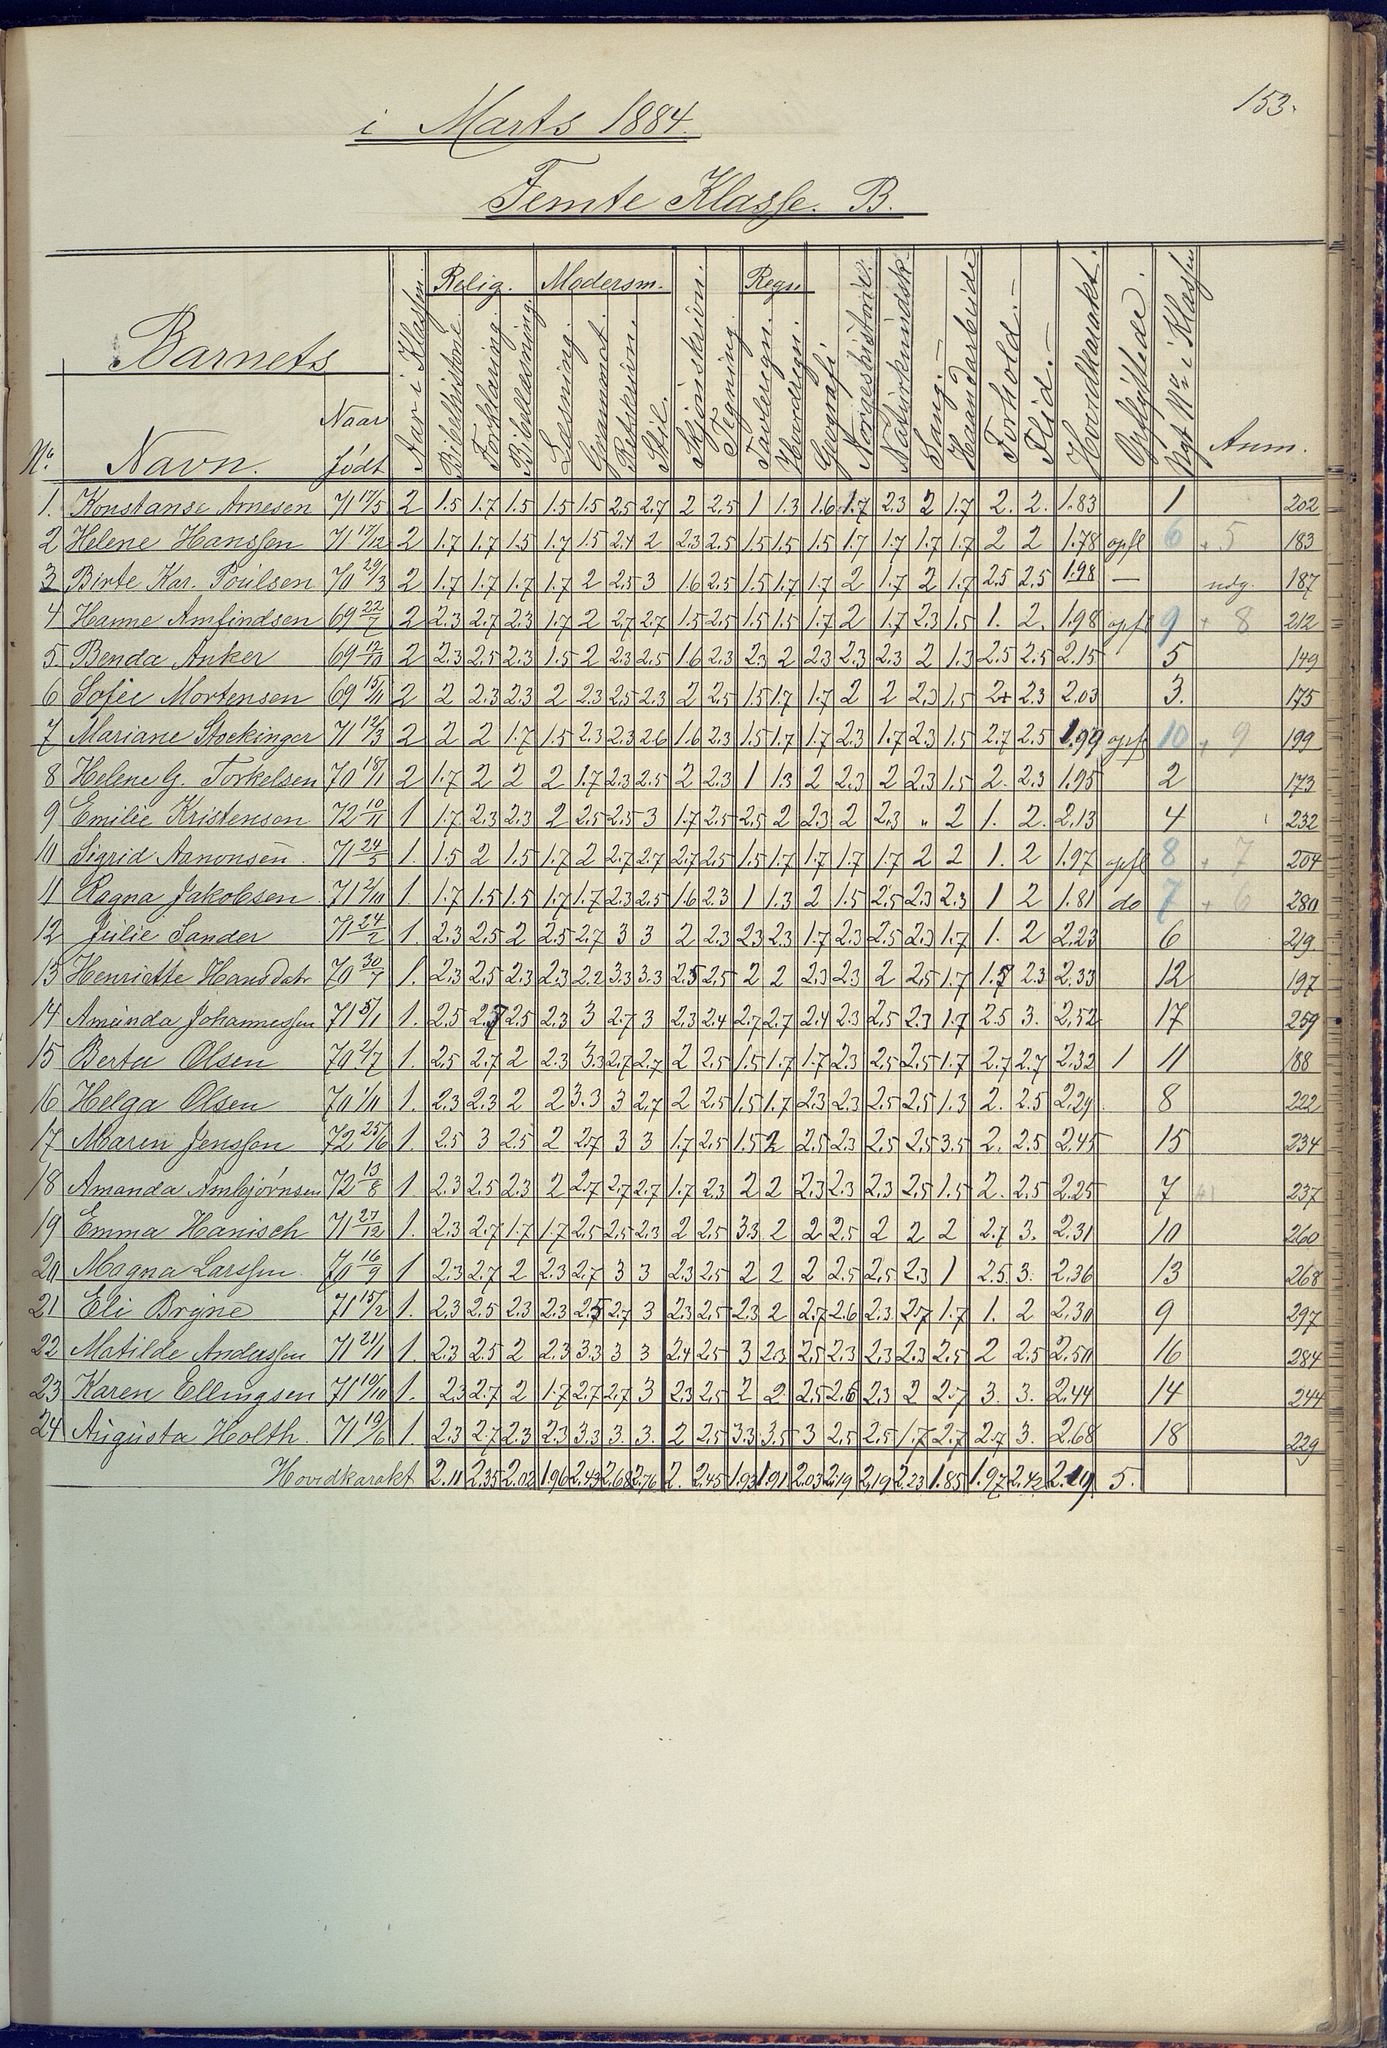 153.
i Marts 1884.
Femte Klasse. B.
Barnets
No. Navn. Naar født Aar i Klassen. Relig. Bibelhistorie. Forklaring. Bibellæsning. Modersm. Læsning. Grammat. Retskrivn. Stil. Skjønskrivn. Tegning. Regn Tavleregn. Hovedregn. Geografi Norgeshistorie. Naturkundsk. Sang. Haandarbeide Forhold. Flid. Hovedkarakt. Opflyttede. Nyt No i Klassen Anm.
1. Konstanse Arnesen 71 17/5 2 1.5 1.7 1.5 1.5 1.5 2.5 2.7 2 2.5 1 1.3 1.6 1.7 2.3 2 1.7 2. 2. 1.83 1 202
2 Helene Hanssen 71 17/12 2 1.7 1.7 1.5 1.7 1.5 2.4 2 2.3 2.5 1.5 1.5 1.5 1.7 1.7 1.7 1.7 2 2 1.78 opfl 6 + 5 183
3 Birte Kar. Poulsen 70 29/3 2 1.7 1.7 1.7 1.7 2 2.5 3 1.6 2.5 1.5 1.7 1.7 2 1.7 2 1.7 2.5 2.5 1.98 — udg. 187
4 Hanne Arnfindsen 69 22/7 2 2.3 2.7 2.3 1.7 2 2.7 2.7 1.5 2.5 1.5 1.5 1.7 2 1.7 2.3 1.5 1. 2. 1.98 opfl 9 + 8 212
5. Benda Anker 69 12/10 2 2.3 2.5 2.3 1.5 2 2.3 2.5 1.6 2.3 2.3 2 2.3 2.3 2.3 2 1.3 2.5 2.5 2.15 5 149
6 Sofie Mortensen 69 15/11 2 2 2.3 2.3 2 2.3 2.5 2.3 2 2.5 1.5 1.7 1.7 2 2 2.3 1.5 2+ 2.3 2.03 3. 175
7 Mariane Stockinger 71 12/3 2 2 2 1.7 1.5 2.3 2.3 2.6 1.6 2.3 1.5 1.7 1.7 2.3 1.7 2.3 1.5 2.7 2.5 1.99 opfl 10 + 9 199
8 Helene G. Torkelsen 70 18/1 2 1.7 2 2 2 1.7 2.3 2.5 2 2.3 1 1.3 2 2.3 2 2.3 1.5 2. 2.3 1.95 2 173
9 Emilie Kristensen 72 10/11 1 1.7 2.3 2.3 2 2.5 2.5 3 1.7 2.5 2.5 2 2.3 2 2.3 " 2 1. 2. 2.13 4 232
10 Sigrid Aanonsen. 71 24/5 1. 1.5 2 1.5 1.7 2 2.7 2.7 2.7 2.5 1.5 1.7 1.7 1.7 1.7 2 2 1. 2 1.97 opfl 8 + 7 204
11 Ragna Jakobsen 71 2/10 1. 1.7 1.5 1.5 1.7 1.7 2.3 2.5 1.6 2.3 1 1.3 2 1.5 2.5 2.3 2.3 1 2 1.81 do 7 + 6 280
12 Julie Sander 71 24/2 1. 2.3 2.5 2 2.5 2.7 3 3 2 2.3 2.3 2.3 1.7 2.3 2.5 2.3 1.7 1. 2 2.23 6 219
13 Henriette Hansdatr 70 30/7 1. 2.3 2.5 2.3 2.3 2.2 3.3 3.3 2.5 2.5 2 2 2.3 2.3 2 2.5 1.7 1.7 2.3 2.33 12 197
14 Amunda Johannessen 71 5/1 1. 2.5 2.7 2.5 2.3 3 2.7 3 2.3 2.4 2.7 2.7 2.4 2.3 2.5 2.3 1.7 2.5 3. 2.52 17 259
15 Berta Olsen 70 2/7 1. 2.5 2.7 2 2.3 3.3 2.7 2.7 2 2.5 1.5 1.7 1.7 2.3 2.5 2.5 1.7 2.7 2.7 2.32 1 11 188
16 Helga Olsen 70 1/11 1. 2.3 2.3 2 2 3.3 3 2.7 2 2.5 1.5 1.7 2.3 2.3 2.5 2.5 1.3 2. 2.5 2.29 8 222
17 Maren Jenssen 72 25/6 1. 2.5 3 2.5 2 2.7 3 3 1.7 2.5 1.5 2 2.5 2.3 2.5 2.5 3.5 2. 2.5 2.45 15 234
18 Amanda Arnbjørnsen 72 13/8 1. 2.3 2.5 2.3 2 2.7 2.7 2.7 1.7 2.3 2 2 2.3 2.3 2.3 2.5 1.5 2. 2.5 2.25 7 237
19 Emma Hanisch 71 27/12 1. 2.3 2.7 1.7 1.7 2.5 2.5 2.3 2 2.5 3.3 2 2 2.5 2 2 2 2.7 3. 2.31 10 260
20 Magna Larssen. 70 16/9 1 2.3 2.7 2 2.3 2.7 3 3 2.3 2.5 2 2 2 2.5 2.5 2.3 1 2.5. 3. 2.36 13 268
21 Eli Bryne 71 15/2 1. 2.3 2.5 2.3 2.3 2.5 2.7 3 2.3 2.5 2.3 2 2.7 2.6 2.3 2.7 1.7 1. 2 2.30 9 297
22 Matilde Anderssen 71 21/1 1. 2.3 2.5 2 2.3 3.3 3 3 2.4 2.5 3 2.3 2.5 2.3 2.3 2.3 2.5 2 2.5 2.50 16 284
23 Karen Ellingsen 71 10/10 1. 2.3 2.7 2 1.7 2.7 2.7 3 2.3 2.5 2 2 2.5 2.6 2.3 2 2.7 3. 3. 2.44 14 244
24 Augusta Holth. 71 19/6 1. 2.3 2.7 2.3 2.3 3.3 3. 3. 2 2.5 3.3 3.5 3 2.5 2.5 1.7 2.7 2.7 3. 2.68 18 229
Hovedkarakt 2.11 2.35 2.02 1.96 2.43 2.68 2.76 2. 2.45 1.93 1.91 2.03 2.19 2.19 2.23 1.85 1.97 2.42 2.19 5.